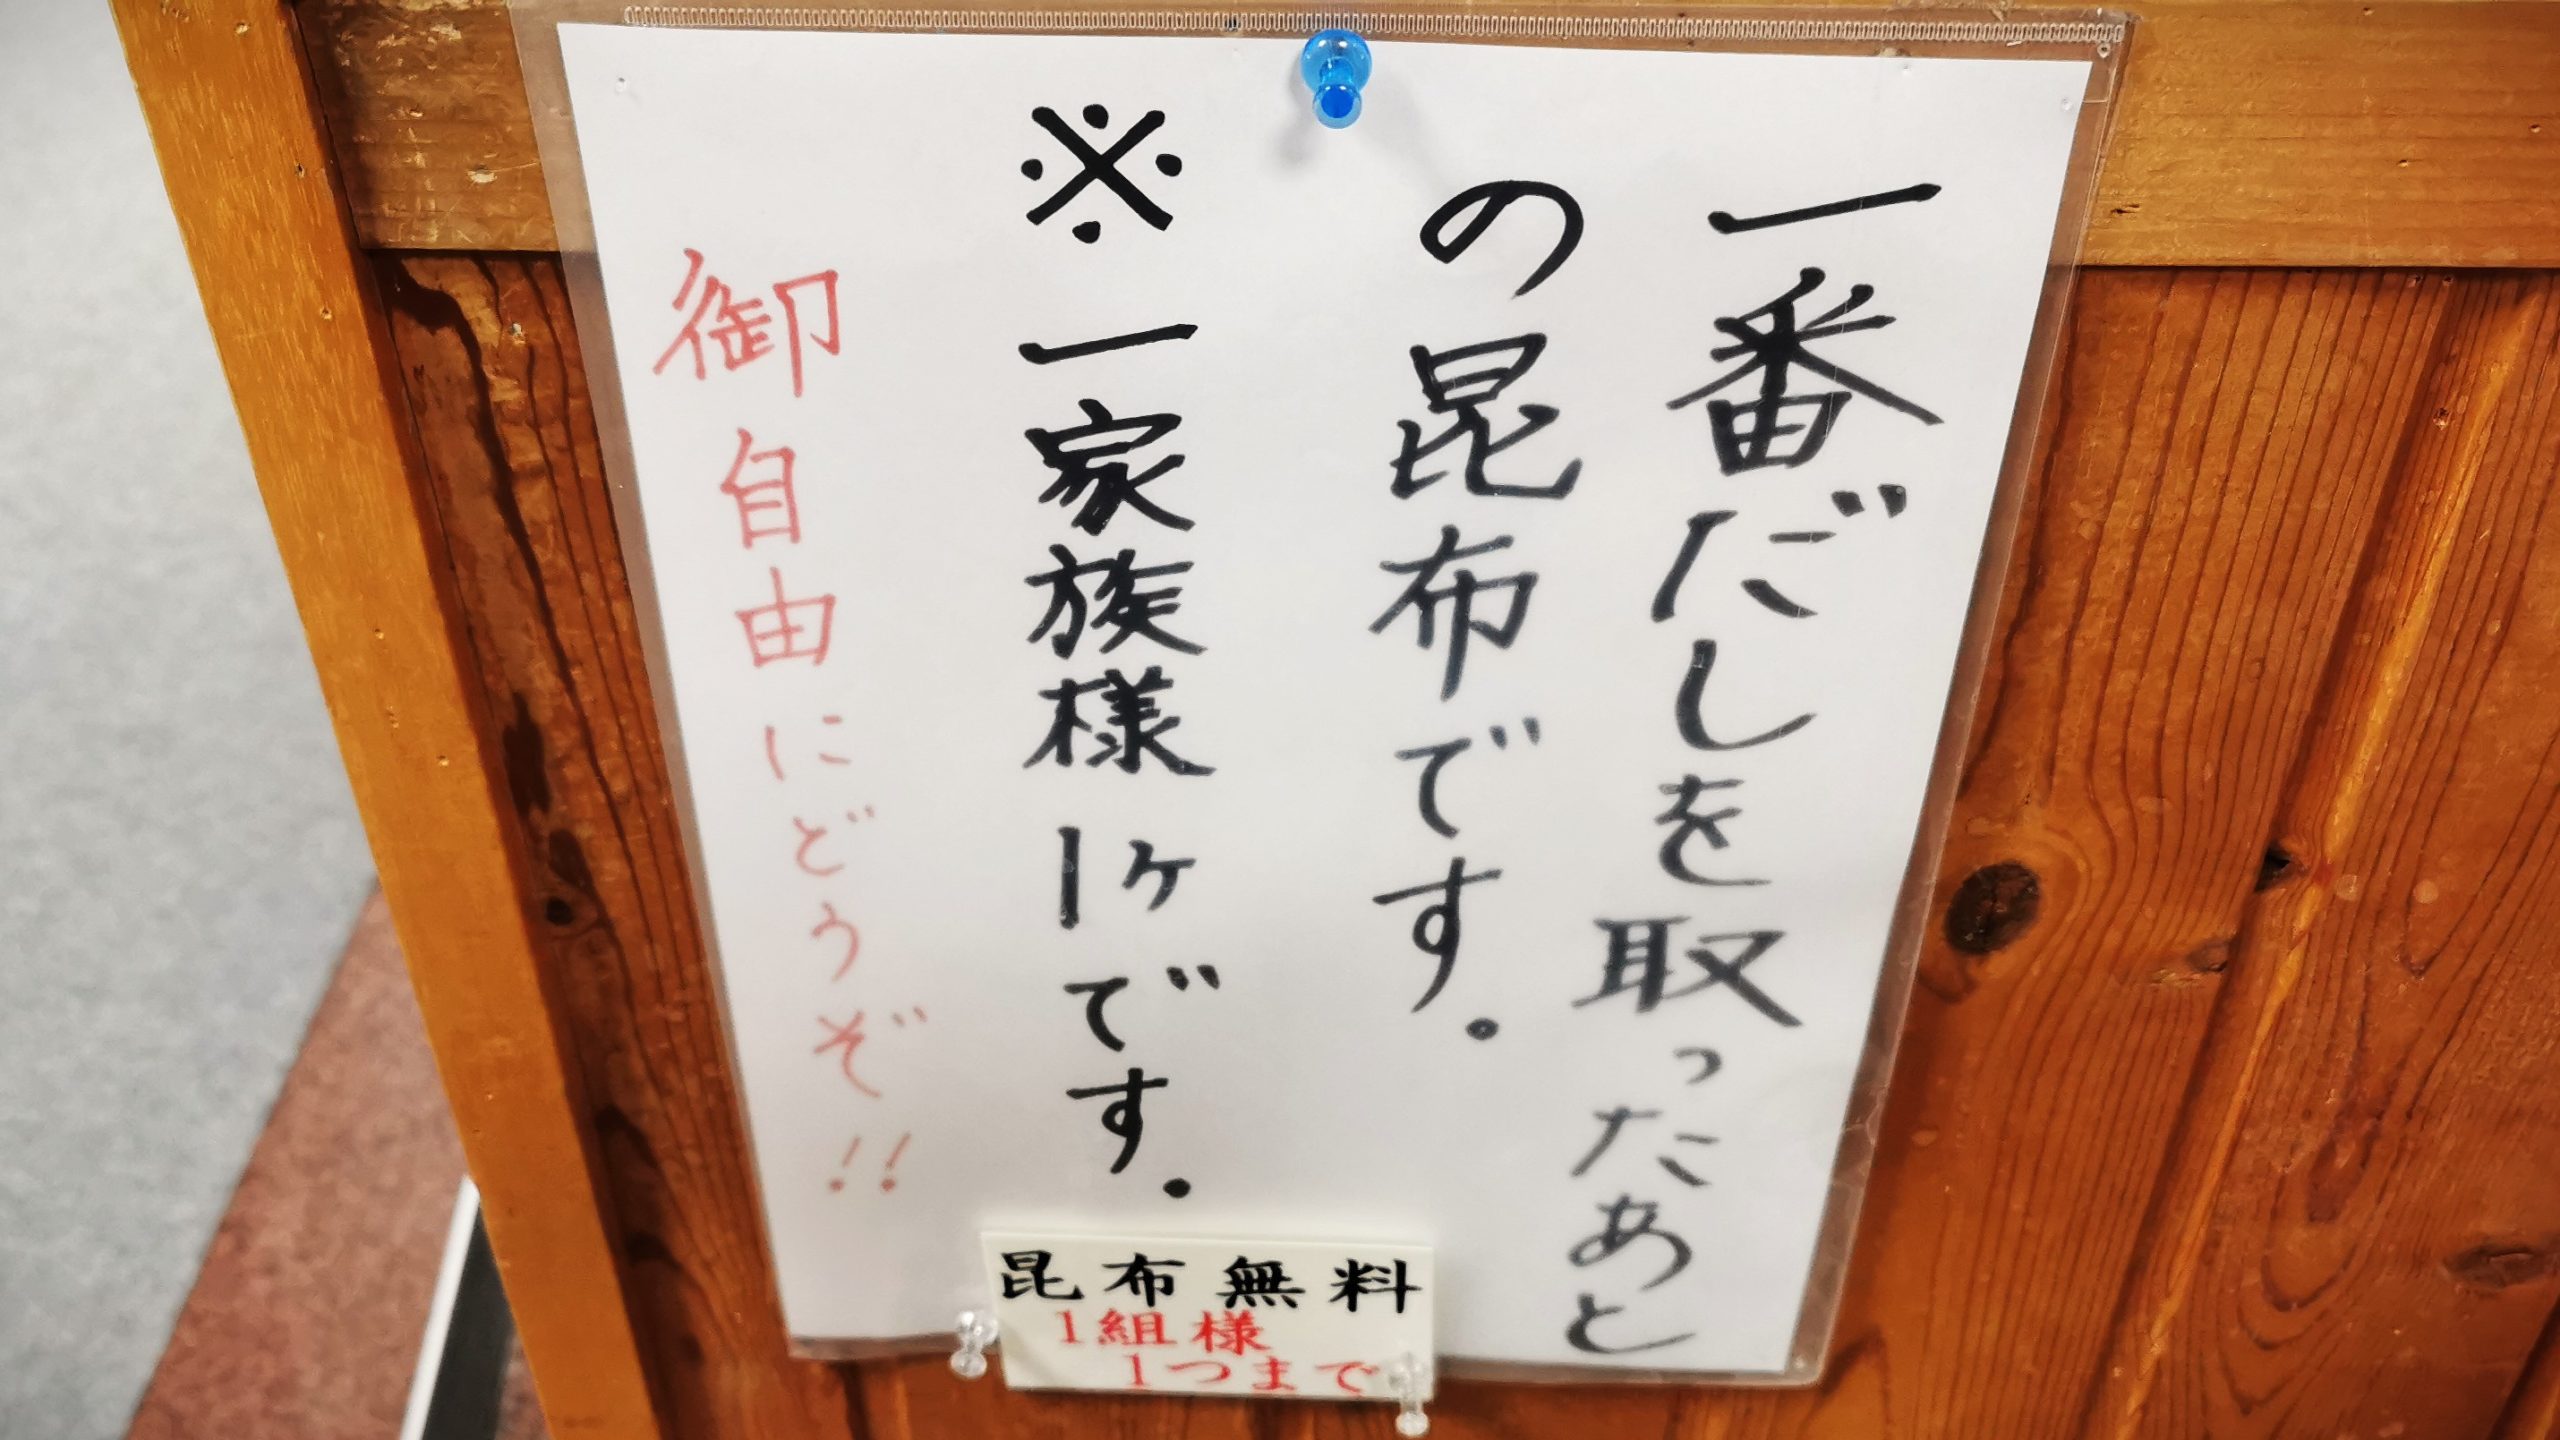 一番だしを取ったあと
の昆布です．
※一家族様1ヶです．
御自由にどうぞ!!
昆布無料
1組様
1つまで